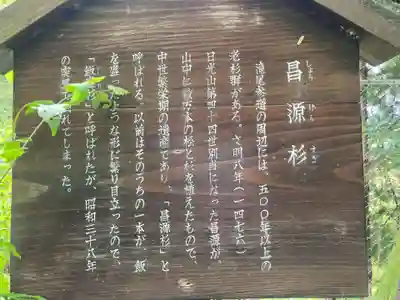 昌源杉
しょう げん すぎ
滝尾参道の周辺には、五〇〇年以上の
老杉群がある。文明八年(一四七六)
日光山第四十四世別当になった昌源が、
山中に数万本の松と杉を植えたもので、
中世繁栄期の遺産であり、「昌源杉」と
呼ばれる。以前はそのうちの一本が、飯
を盛ったような形に繁り目立ったので、
「飯盛杉」と呼ばれたが、昭和三十八年
の れてしまった。